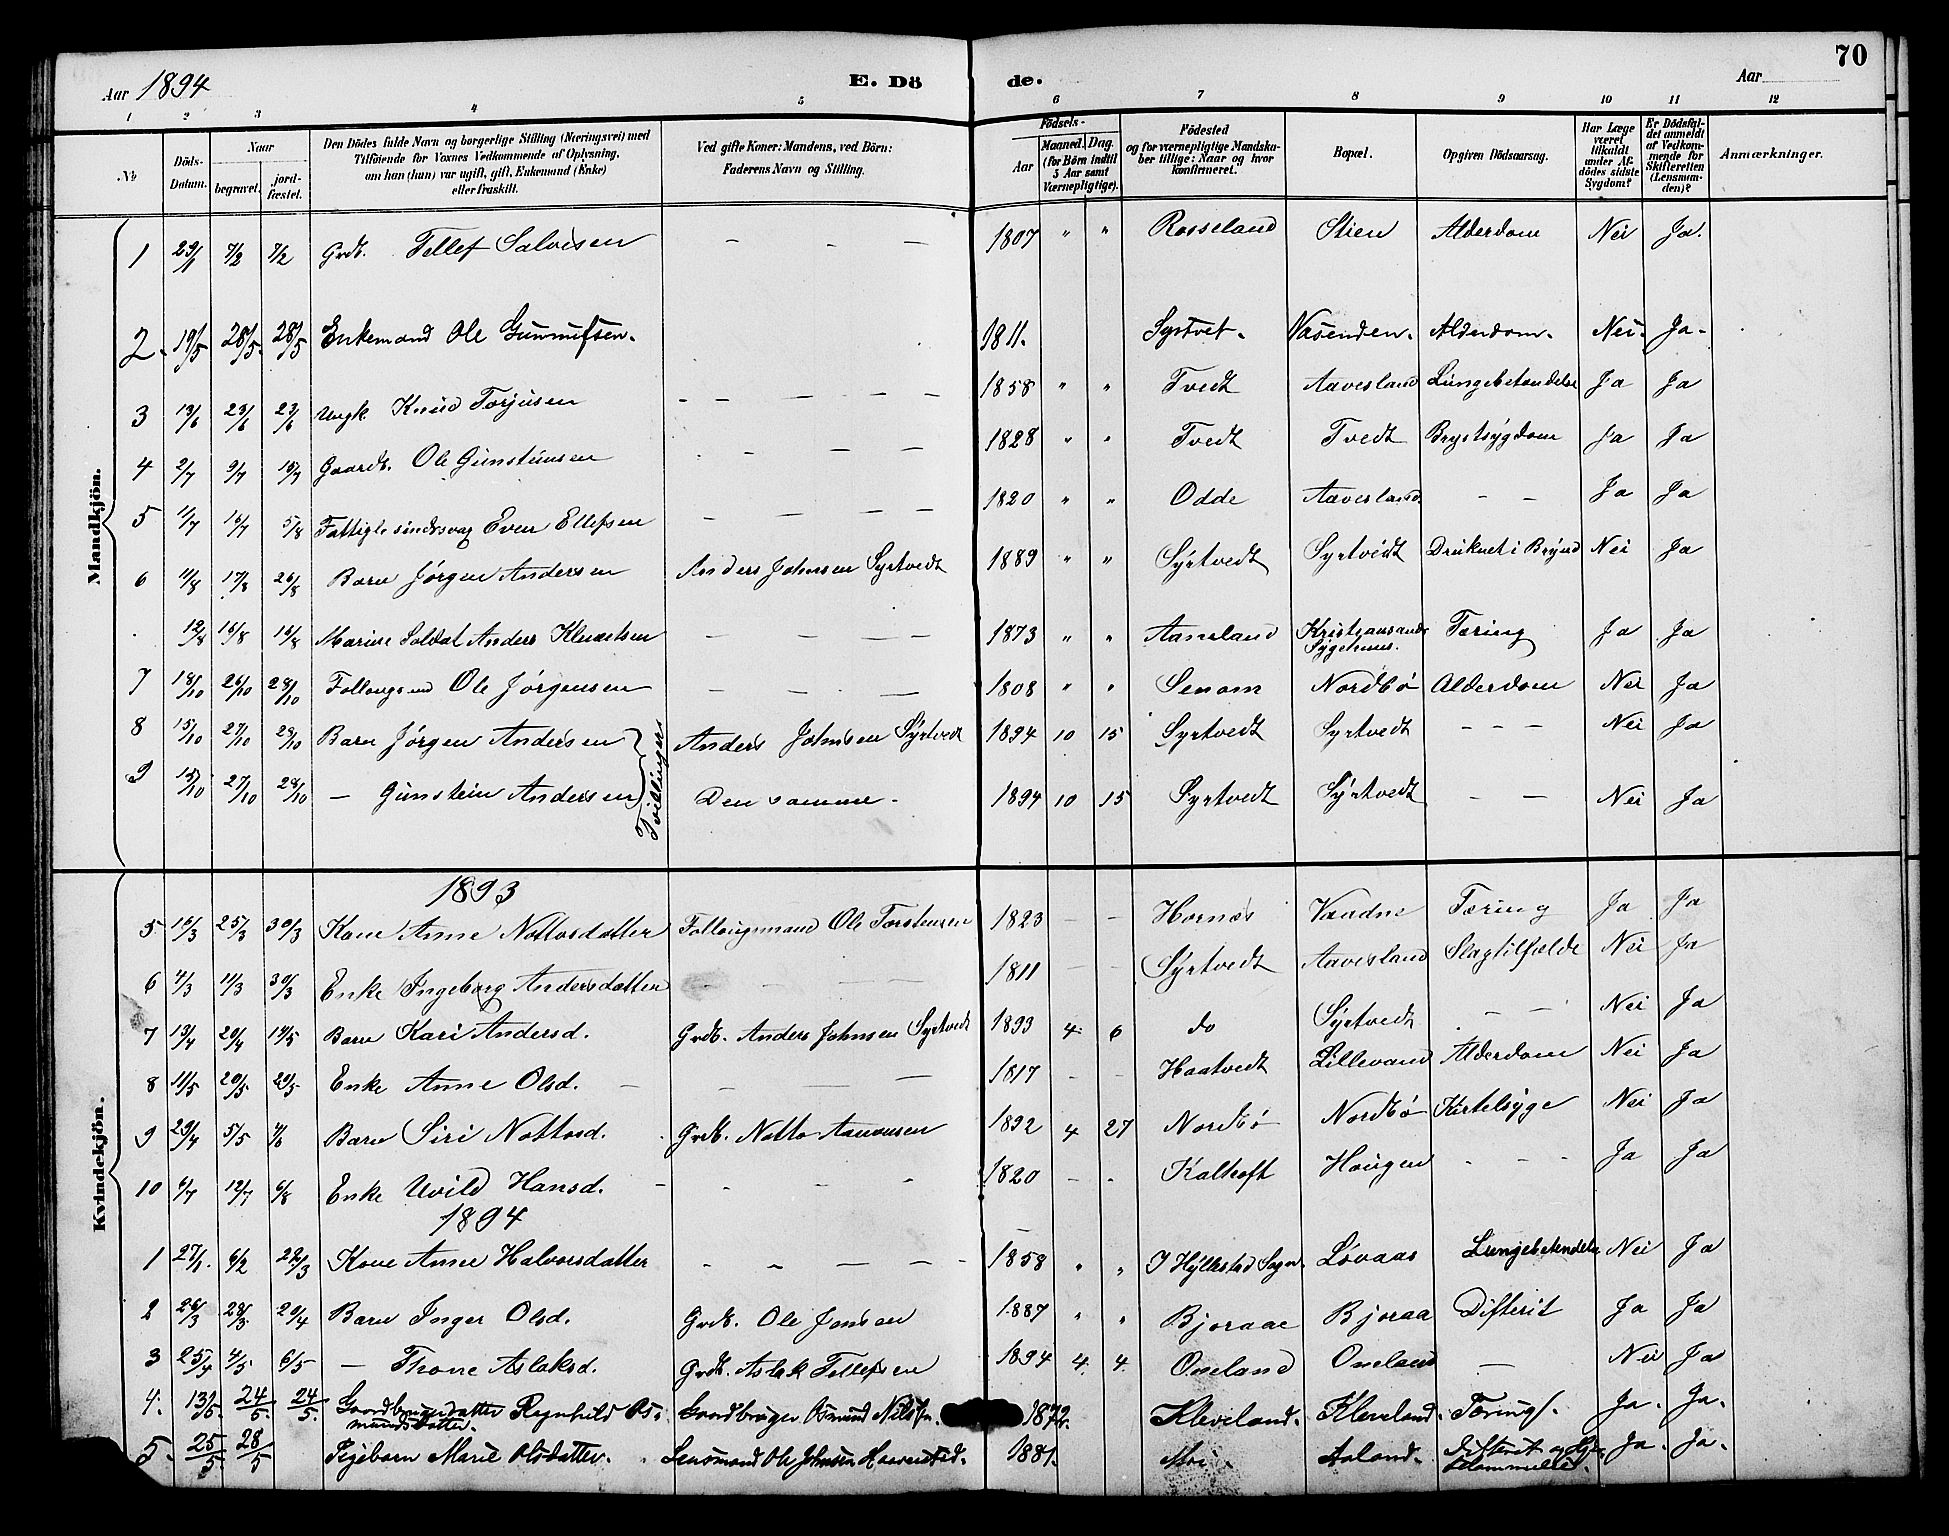 Aar 1894
E. Dö
de.
Aar
70
1 2 3 4 5 6 7 8 9 10 11 12
No
Döds-Datum.
Naar
begravet.
jord-fæstet.
Den Dödes fulde Navn og borgerlige Stilling (Næringsvei) med
Tilföiende for Voxnes Vedkommende af Oplysning,
om han (hun) var ugift, gift, Enkemand (Enke)
eller fraskilt.
Ved gifte Koner: Mandens, ved Börn:
Faderens Navn og Stilling.
Födsels-
Aar
Maaned. Dag.
(for Börn indtil
5 Aar samt
Værnepligtige).
Födested
og for værnepligtige Mandska-
ber tillige: Naar og hvor
konfirmeret.
Bopæl.
Opgiven Dödsaarsag.
Har Læge
været
tilkaldt
under Af-
dödes sidste
Sygdom?
Er Dödsfal-
det anmeldt
af Vedkom-
mende for
Skifteretten
(Lensman-
den)?
Anmærkninger.
Mandkjön.
1 29/1 7/2 7/2 Grdb. Tellef Salvesen — — — 1807 " " Rosseland Stien Alderdom Nei Ja.
2. 19/5 28/5. 28/5 Enkemand Ole Gunnufsen. 1811. Syrtvet. Vasenden. Alderdom. Nei. Ja.
3 13/6 23/6 23/6 Ungk. Knud Torjusen — — — — — 1858 " " Tvedt Aavesland Lungebetændelse Ja Ja
4 2/7 9/7 15/7 Gaardb. Ole Gunstensen — — — — 1828 " " Tvedt Tvedt Brystsygdom Ja Ja
5 11/7 16/7 5/8 Fattigl. sindssvag Even Ellefsen — — — — 1820 " " Odde Aavesland — — Ja Ja
6 11/8 17/8 26/8 Barn Jørgen Andersen Anders Johnsen Syrtvedt 1889 " " Syrtvedt Syrtvedt Druknet i Brynd Nei Ja
12/8 16/8 16/8 Marine Soldat Anders Knudsen — — — — 1873 " " Aaneland Kristiansands Sygehuus. Tæring Ja Ja
7 18/10 26/10 28/10 Follaugsmd Ole Jørgensen — — — — 1808 " " Senom Nordbø Alderdom Nei Ja
8 15/10 27/10 28/10 Barn Jørgen Andersen Anders Johnsen Syrtvedt 1894 10 15 Syrtvedt Syrtvedt — — — Nei Ja
Tvillinger
9 15/10 27/10 28/10 — Gunstein Andersen Den samme. 1894 10 15 Syrtvedt Syrtvedt — — Nei Ja
Kvindekjön.
1893
5 16/3 25/3 30/3 Kone Anne Nottosdatter Follaugsmand Ole Torstensen 1823 — — Hornæs Vandne Tæring Ja Ja
6 4/3 11/3 30/3 Enke Ingeborg Andersdatter — — — 1811 — — Syrtvedt Aavesland Slagtilfælde Nei Ja
7 13/4 20/4 19/5 Barn Kari Andersd. Grdb. Anders Johnsen Syrtvedt 1893 4 6 do Syrtvedt — — Nei Ja
8 11/5 20/5 29/5 Enke Anne Olsd. — — — — 1817 — — Haatvedt Lillevand Alderdom Nei Ja
9 29/4 5/5 4/6 Barn Siri Nottosd. Grdb. Notto Aanonsen 1892 4 27 Nordbø Nordbø Kirtelsyge Nei Ja
10 6/7 12/7 6/8 Enke Uvild Hansd. — — — — 1820 — — Kalhoft Haugen — — — Ja Ja
1894
1 27/1. 6/2 22/3 Kone Anne Halvorsdatter — — — — — 1858 " " I Hyllestad Sogn. Løvaas Lungebetændelse Nei Ja
2 26/3 28/3. 20/4 Barn Inger Olsd. Grdb. Ole Jensen 1887 " " Bjoraae Bjoraa Difterit Ja Ja
3 25/4 4/5 6/5 — Thone Aslaksd. Grdb. Aslak Tellefsen 1894 4. 4. Oneland Oneland — Nei Ja
4. 13/5. 24/5. 24/5. Gaardbrugerdatter Regnhild Os-
mundsdatter. Gaardbruger Osmund Nilsen. 1872. Kleveland. Kleveland. Tæring. Ja. Ja.
5. 25/5. 28/5 Pigebarn Marie Olsdatter. Lensmand Ole Johnsen 1881. Aaland. Difterit og Ja. Ja.